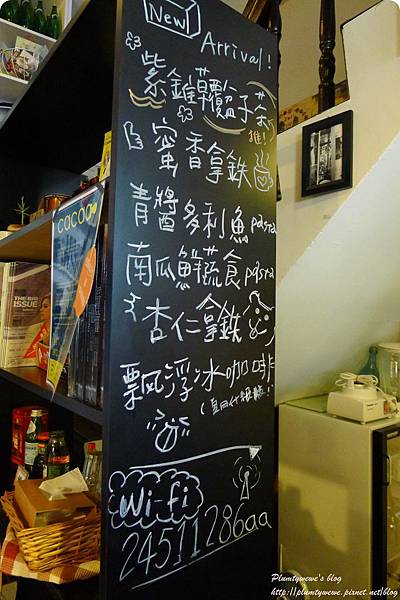 New
Arrival!
紫錐草覊子茶
推!
蜜香拿鐵
青醬多利魚pasta
南瓜鮮蔬食pasta
杏仁拿鐵
飄浮冰咖啡
Wi-fi
24511286aa
cacao
THE BIG
ISSUE
Plumtywewe's blog
http://plumtywewe.pixnet.net/blog